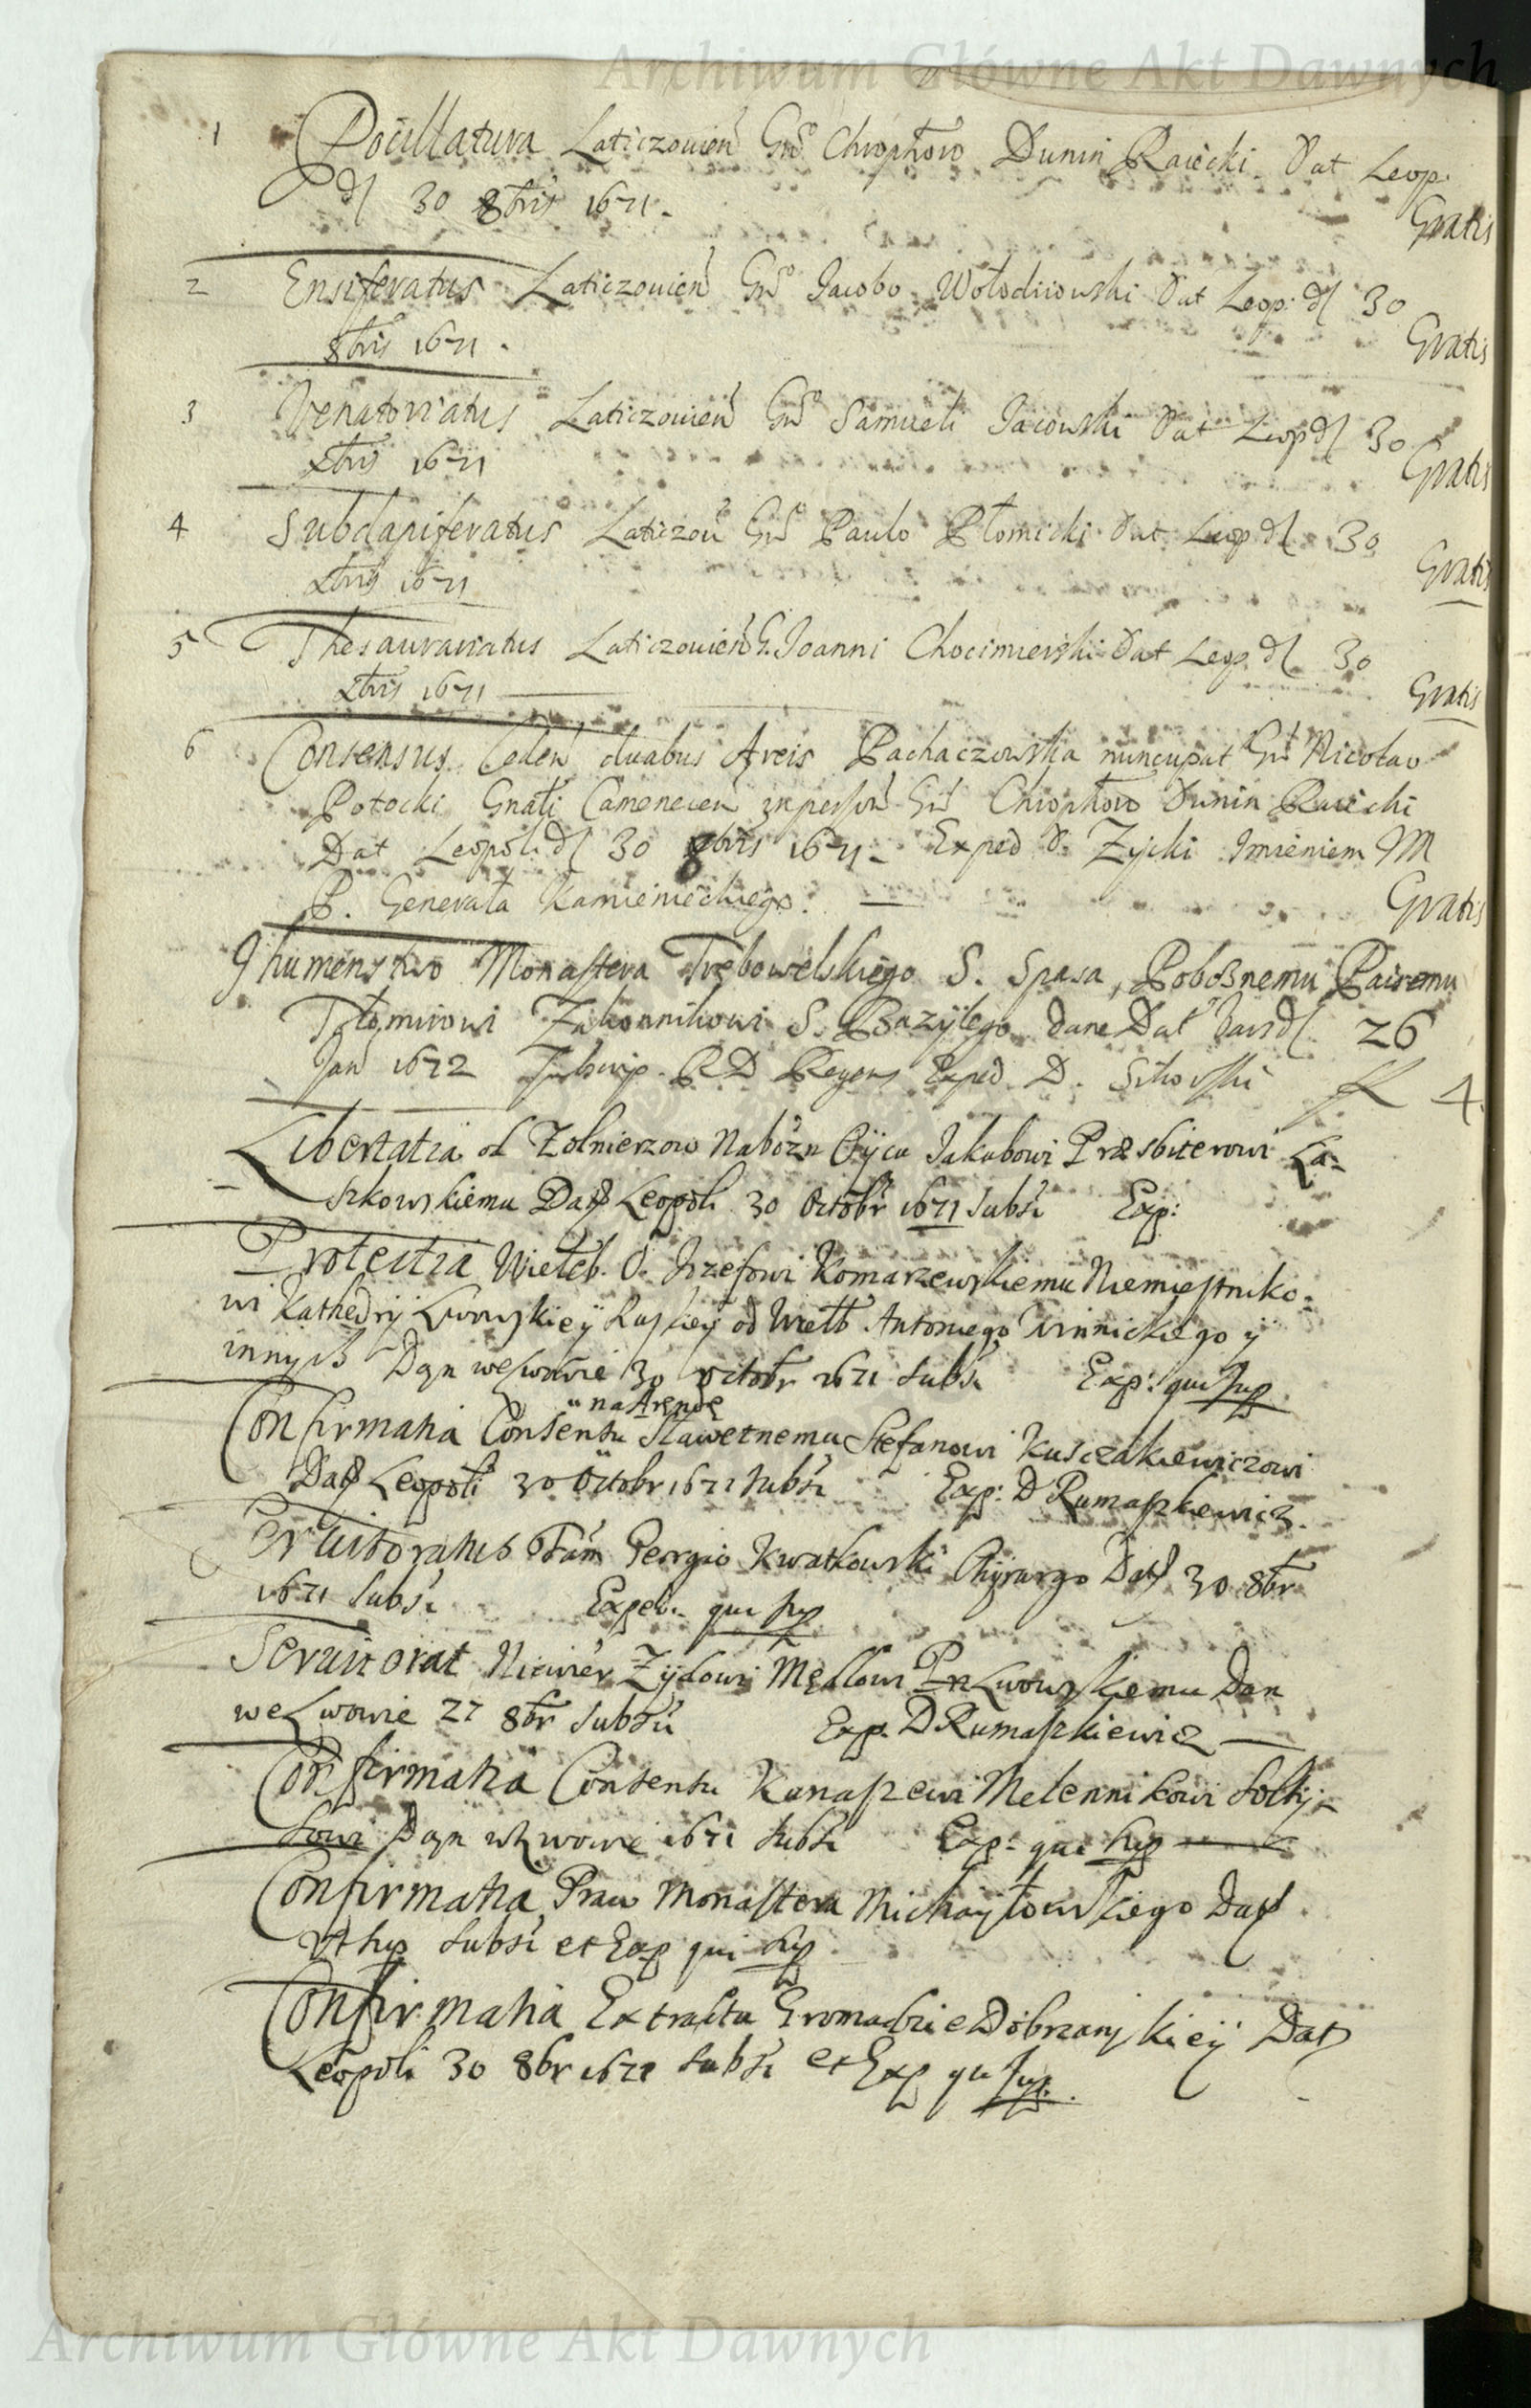 Archiwum Główne Akt Dawnych
1 Pocillatura Laticzouien Gnso Chrophoro Dunin Raiecki Dat Leop.
d 30 8bris 1671. Gratis
2 Ensiferatus Laticzouien Gnso Jacobo Wołodiiowski Dat Leop. d 30
8bris 1671. Gratis
3 Venatoriatus Laticzouien Gnso Samueli Jacowski Dat Leop d 30
8bris 1671 Gratis
4 Subdapiferatus Laticzou Gnso Paulo Płomicki Dat Leop d 30
8bris 1671 Gratis
5 Thesaurariatus Laticzouien G. Joanni Chocimierski Dat Leop d 30
8bris 1671 Gratis
6 Consensus Ceden duabus Areis Pachaczowska nuncupat Gnso Nicolao
Potocki Gnali Camenecen in person Gnsi Chrophoro Dunin Raiecki
Dat Leopoli d 30 8bris 1671. Exped D. Zycki Imieniem JM
P. Generała Kamienieckiego. Gratis
Jhumenstwo Monastera Trębowelskiego S. Spasa, Pobożnemu
Zakonnikowi S. Bazylego dane Dat d 26
Jan 1672 R D Regens Exped D. fl 4.
Libertatia od Zolnierzow Nabożn Oycu Jakubowi Præsbiterowi La-
szkowskiemu Dat Leopoli 30 Octobr 1671 Subsi Exp:
Protectia Wieleb. O. Jozefowi Komarzewskiemu Niemiestniko-
wi Kathedry Lwowskiey Ruskiey od Wielb Antoniego Winnickiego y
innych Dan we Lwowie 30 Octobr 1671 Subsi Exp: qui sup
na Arendę
Confirmatia Consensu Sławetnemu Stefanowi Kusczakiewiczowi
Dat Leopoli 30 Octobr 1671 Subsi Exp: D Rumaszkewicz.
Servitoratus Georgio Kwatkowski Chyrurgo Dat 30 8br
1671 Subsi Exped: qui sup
Servitorat Niewier Zydowi Mędlowi Lwowskiemu Dan
we Lwowie 27 8br Subsi Exp. D Rumaszkiewicz
Confirmatia Consensu Kanaszewi Melennikowi Solty-
sowi Dan w Lwowie 1671 Subsi Exp: qui sup
Confirmatia Praw Monastera Michayłowskiego Dat
Vt sup Subsi et Exp qui sup
Confirmatia Extractu Gromadzie Dobrzanskiey Dat
Leopoli 30 8br 1671 Subsi et Exp qui sup.
Archiwum Główne Akt Dawnych